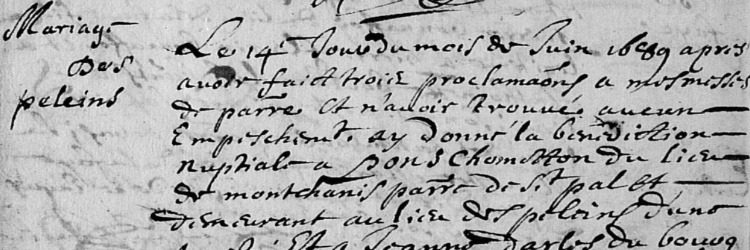 Mariage
Des
peleins
Le 14e Jour du mois de Juin 1689 apres
avoir faict trois proclamaons a mes messes
de parre Et n'avoir trouvé aucun
Empeschemt ay donné la benediction
nuptiale a pons Chometton du lieu
de montchanis parre de St pal Et
demeurant au lieu des peleins d'une
part Et a Jeanne Darles du bourg